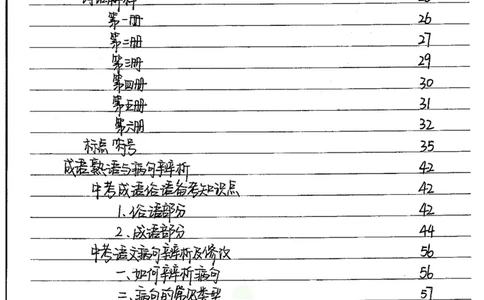 词语解释 25
第一册 26
第二册 27
第三册 29
第四册 30
第五册 31
第六册 32
标点符号 35
成语熟语与病句辨析 42
中考成语俗语备考知识点 42
1.俗语部分 42
2.成语部分 44
中考语文病句辨析及修改 56
一、如何辨析病句 56
二、病句的常见类型 57